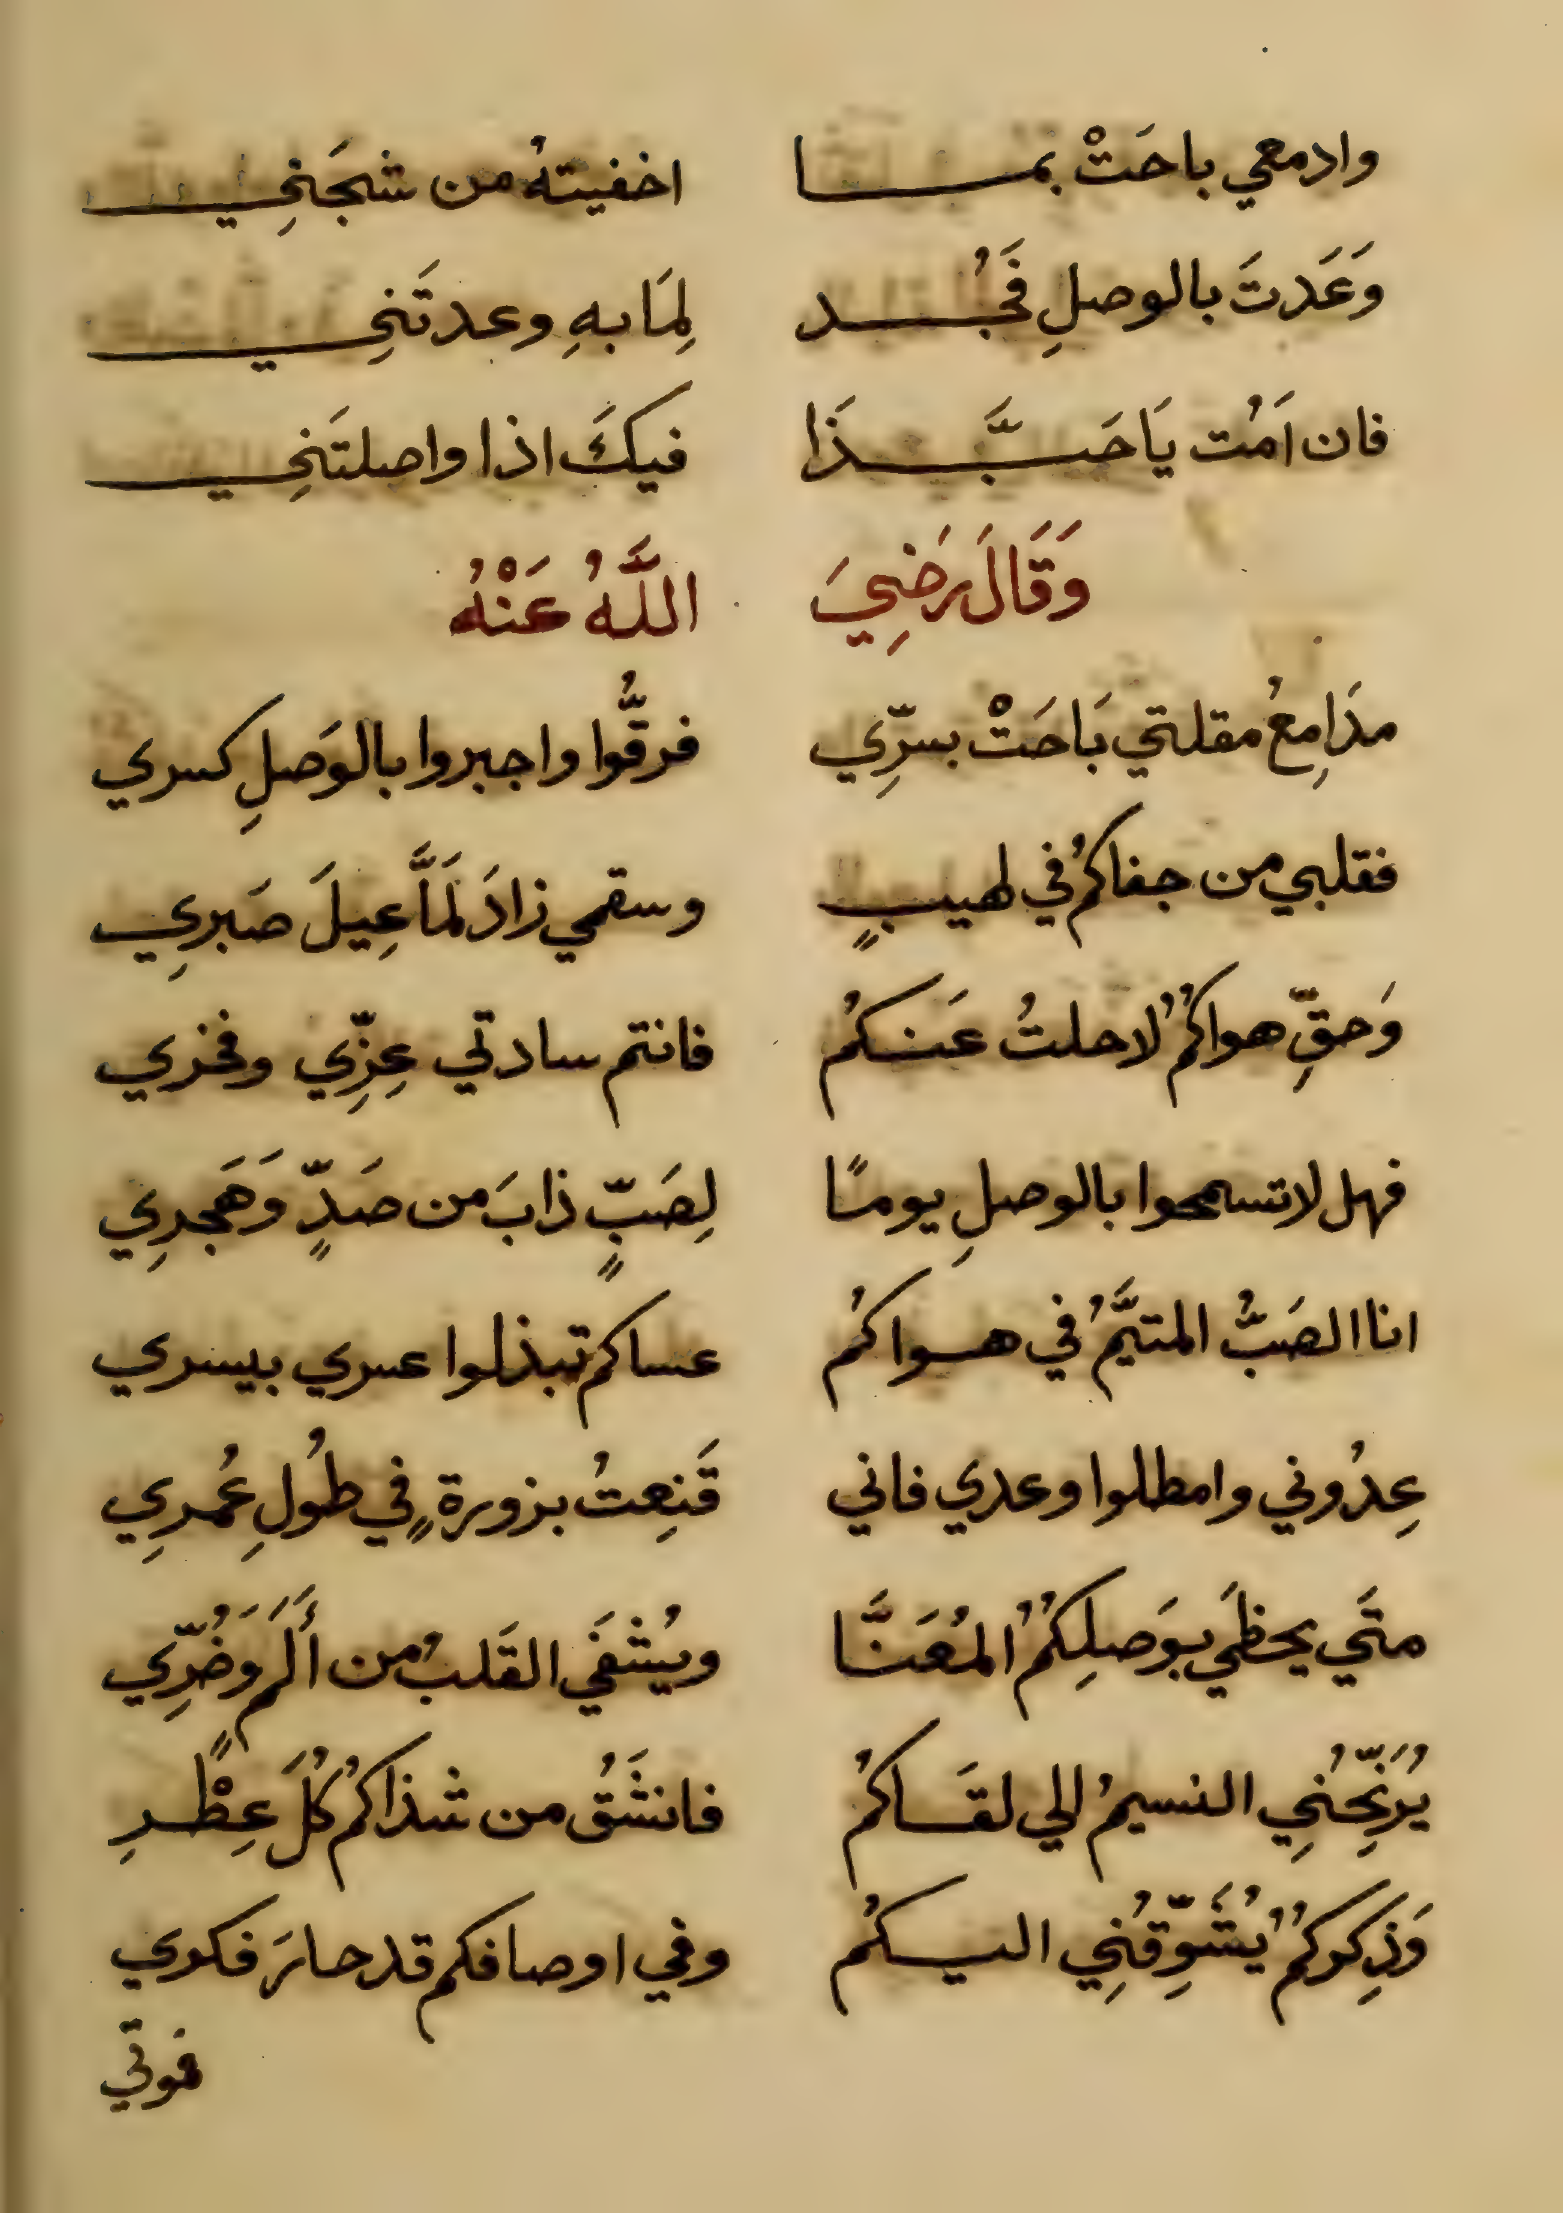 وادمعي باحَتْ بما اخفيتهُ من شجَنِي
وَعَدتَ بالوصلِ فَجُد لِمَا بهِ وعدتَنِي
فان اَمُت يَا حَبَّذَا فيكَ اذا واصلتَنِي
وَقَالَ رَضِيَ اللَّهُ عَنْهُ
مدَامِعُ مقلتي بَاحَتْ بسرِّي فرقُّوا واجبروا بالوَصلِ كسري
فقلبي من جفاكمُ في لهيبٍ وسقمي زادَ لَمَّا عِيلَ صَبرِي
وَحقِّ هواكمُ لا حلتُ عَنكمُ فانتم سادتي عِزِّي وفخري
فهل لا تسمحوا بالوصلِ يومًا لِصَبٍّ ذابَ من صَدٍّ وَهَجرِي
انا الصَبُّ المتيَّمُ في هواكمُ عساكم تبذلوا عسري بيسري
عِدُوني وامطلوا وعدي فاني قَنِعتُ بزورةٍ في طُولِ عُمرِي
متَي يحظَي بوَصلِكمُ المُعَنَّا ويُشفَي القَلبُ من أَلَمٍ وَضُرِّي
يُرَنِّحُنِي النسيمُ الي لقَاكمُ فانشَقُ من شذاكمُ كُلَ عِطْرِ
وَذِكركمُ يُشَوِّقُنِي اليكمُ وفي اوصافكم قد حارَ فكري
فوتي